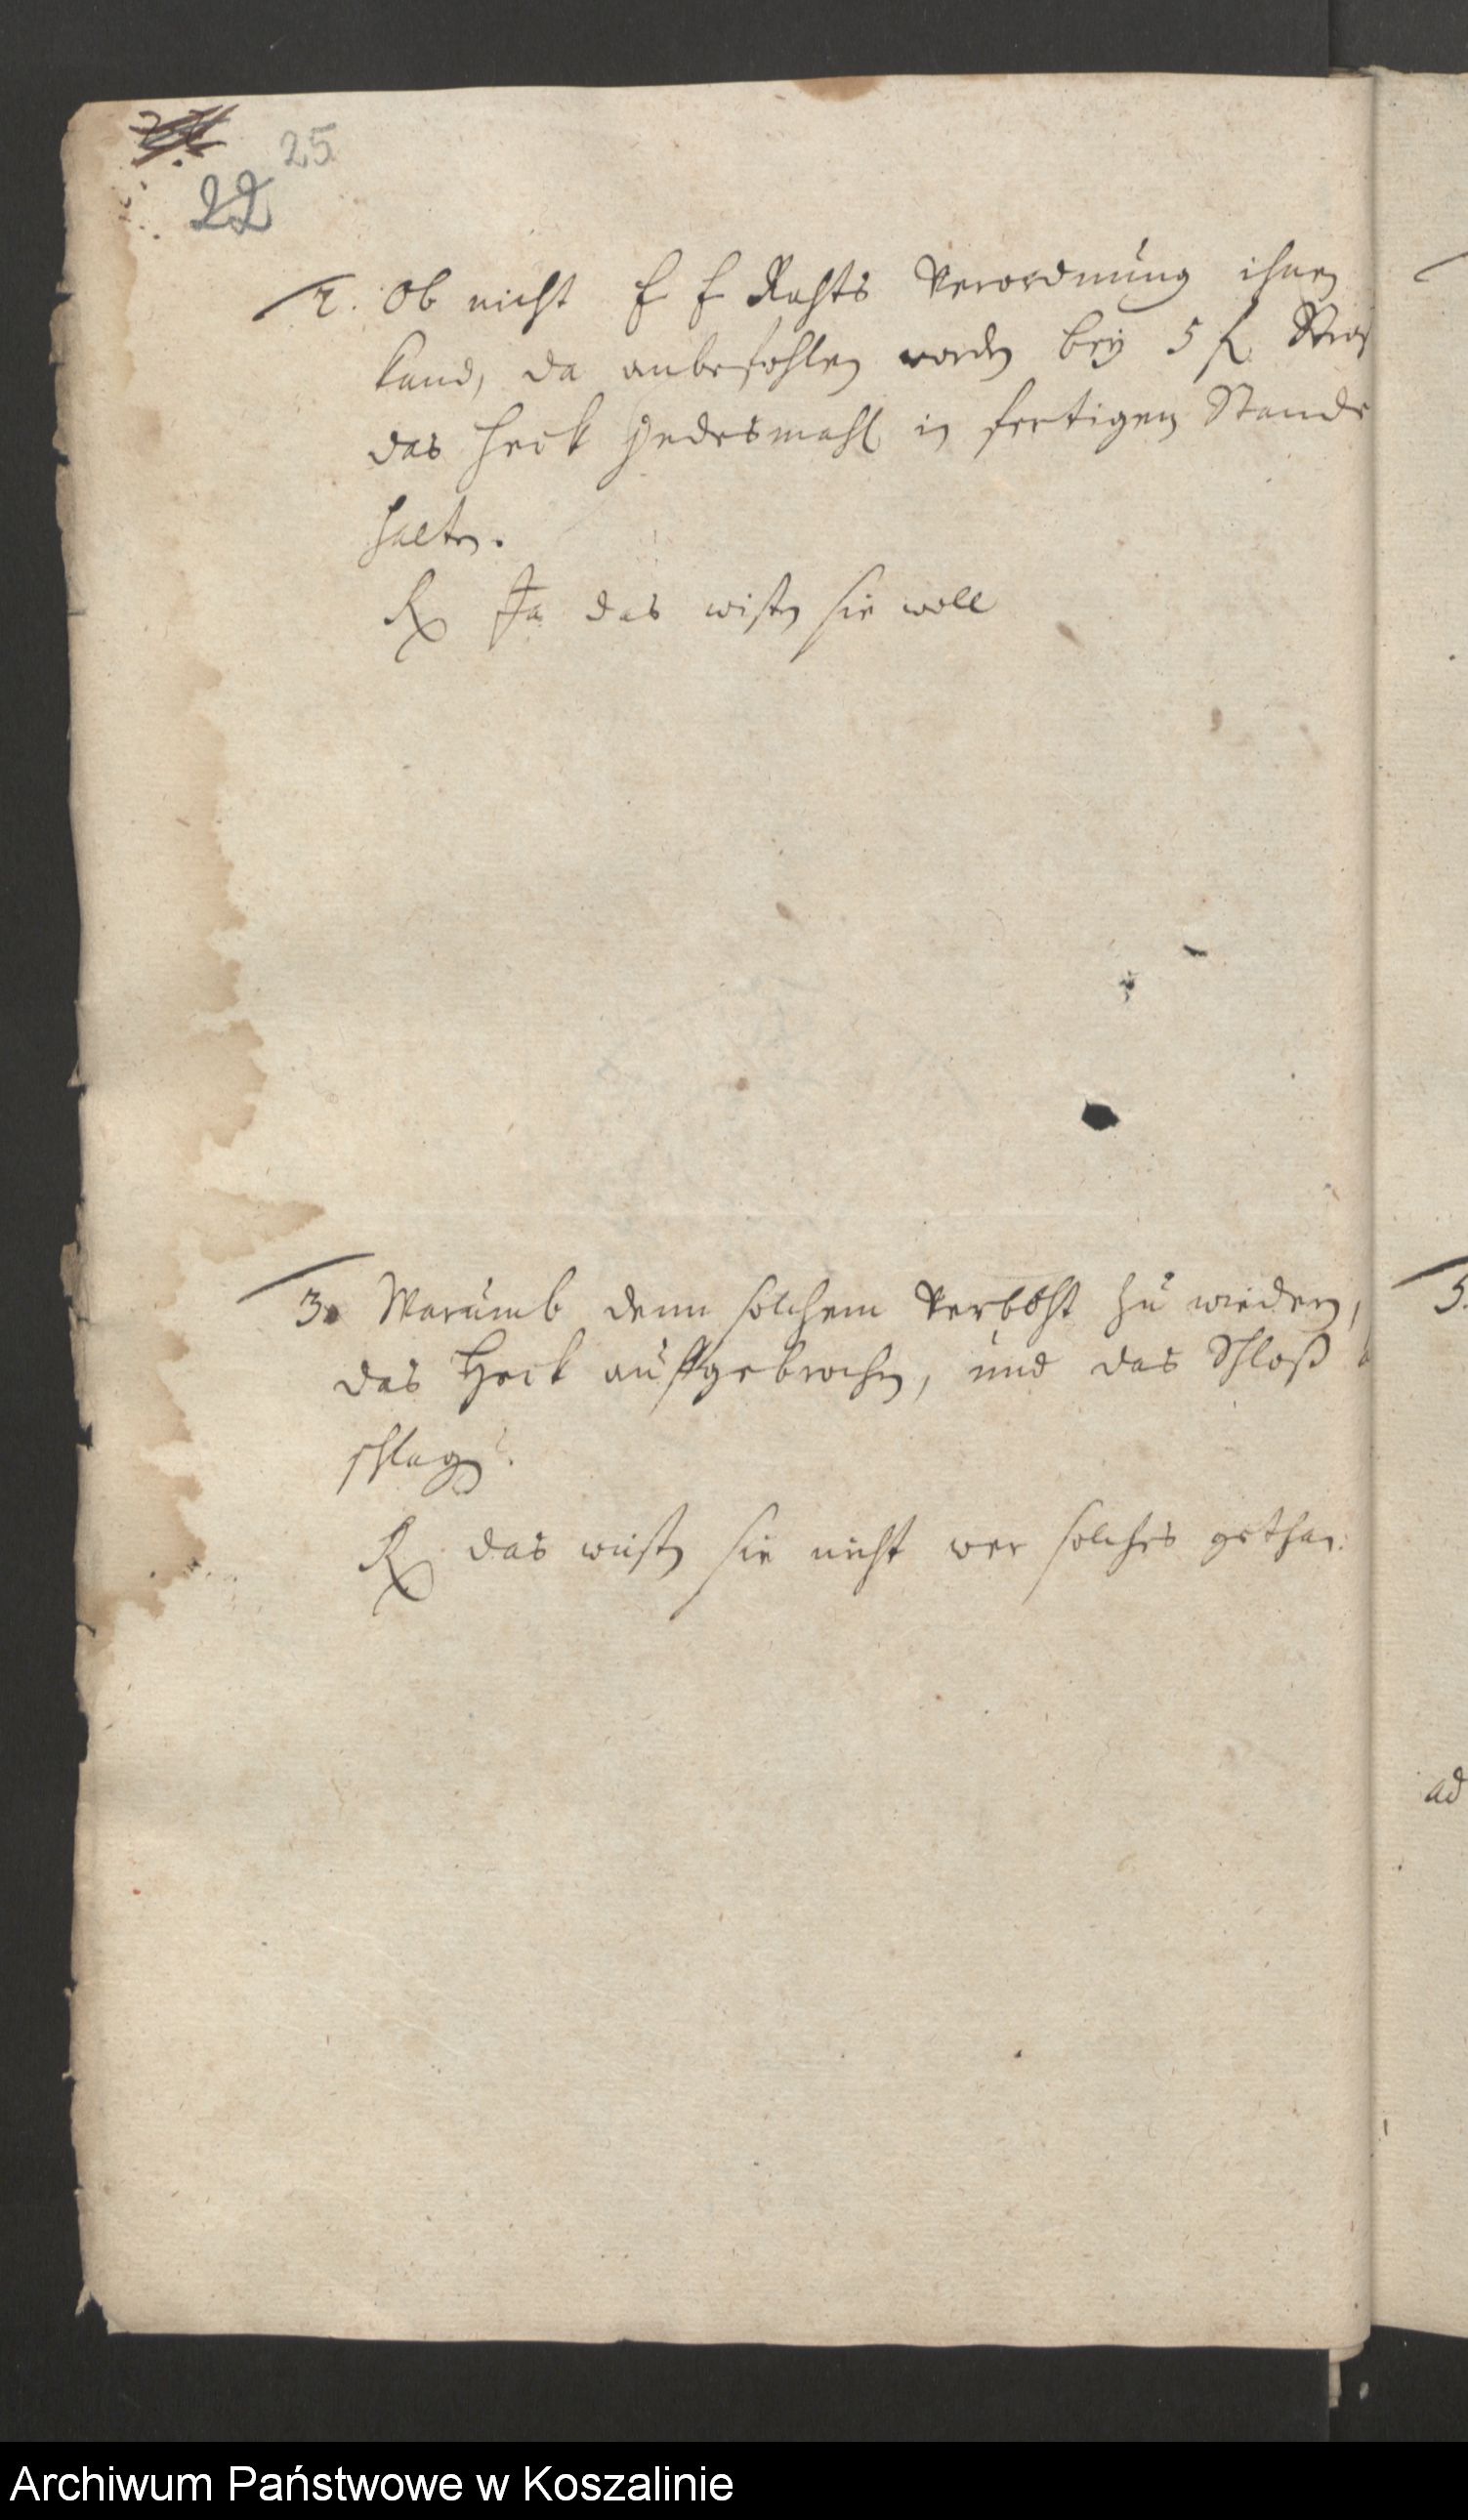 25
22
2. Ob nicht E E Rahts Verordnung ihnen
kund, da anbefohlen worden bey 5 fl Straf
das Heck jedesmahl in fertigen Stande
halten.
Rx Ja das wisten sie woll
3. Warumb denn solchem Verboht zu wiedern,
das Heck auffgebrochen, und das Schloß
schlagen.
Rx das wusten sie nicht wer solches gethan.
5.
ad
Archiwum Państwowe w Koszalinie